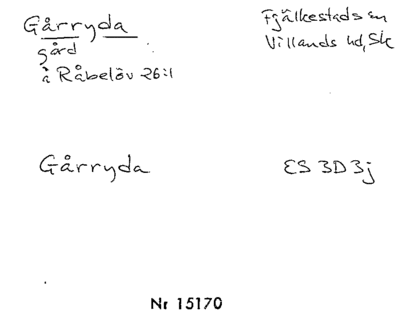 Gårryda
gård
å Råbelöv 26:1
Fjälkestads sn
Villands hd, Sk
Gårryda
ES 3D3j
Nr 15170